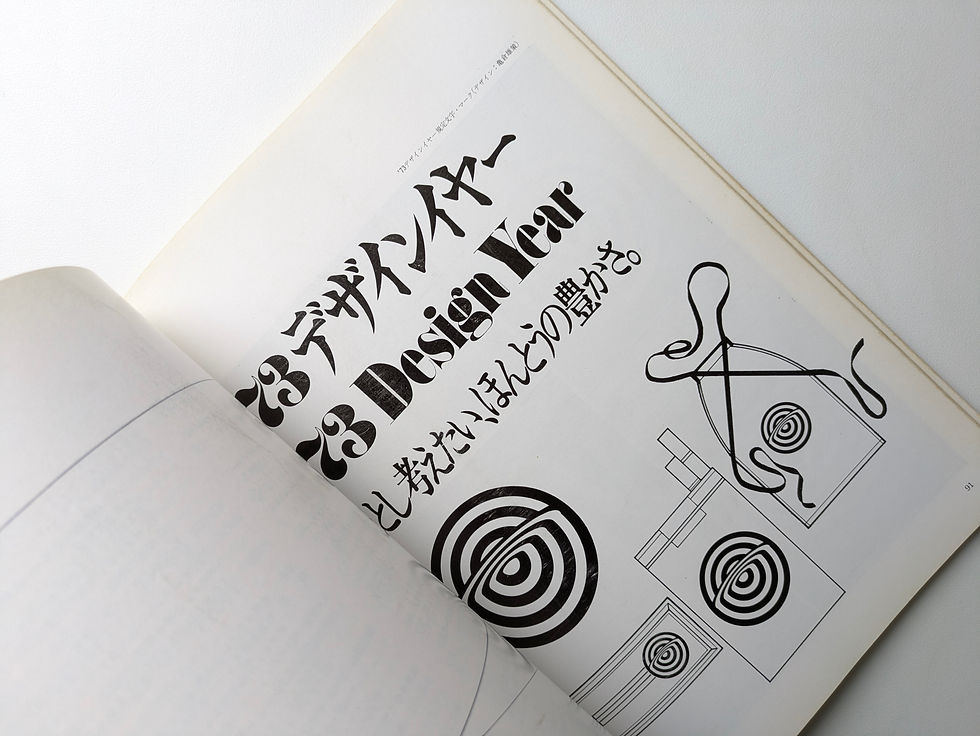 '73デザインイヤー規定文字・マーク(デザイン:亀倉雄策)
73 デザインイヤー
73 Design Year
とし考えたい、ほんとうの豊かさ。
91